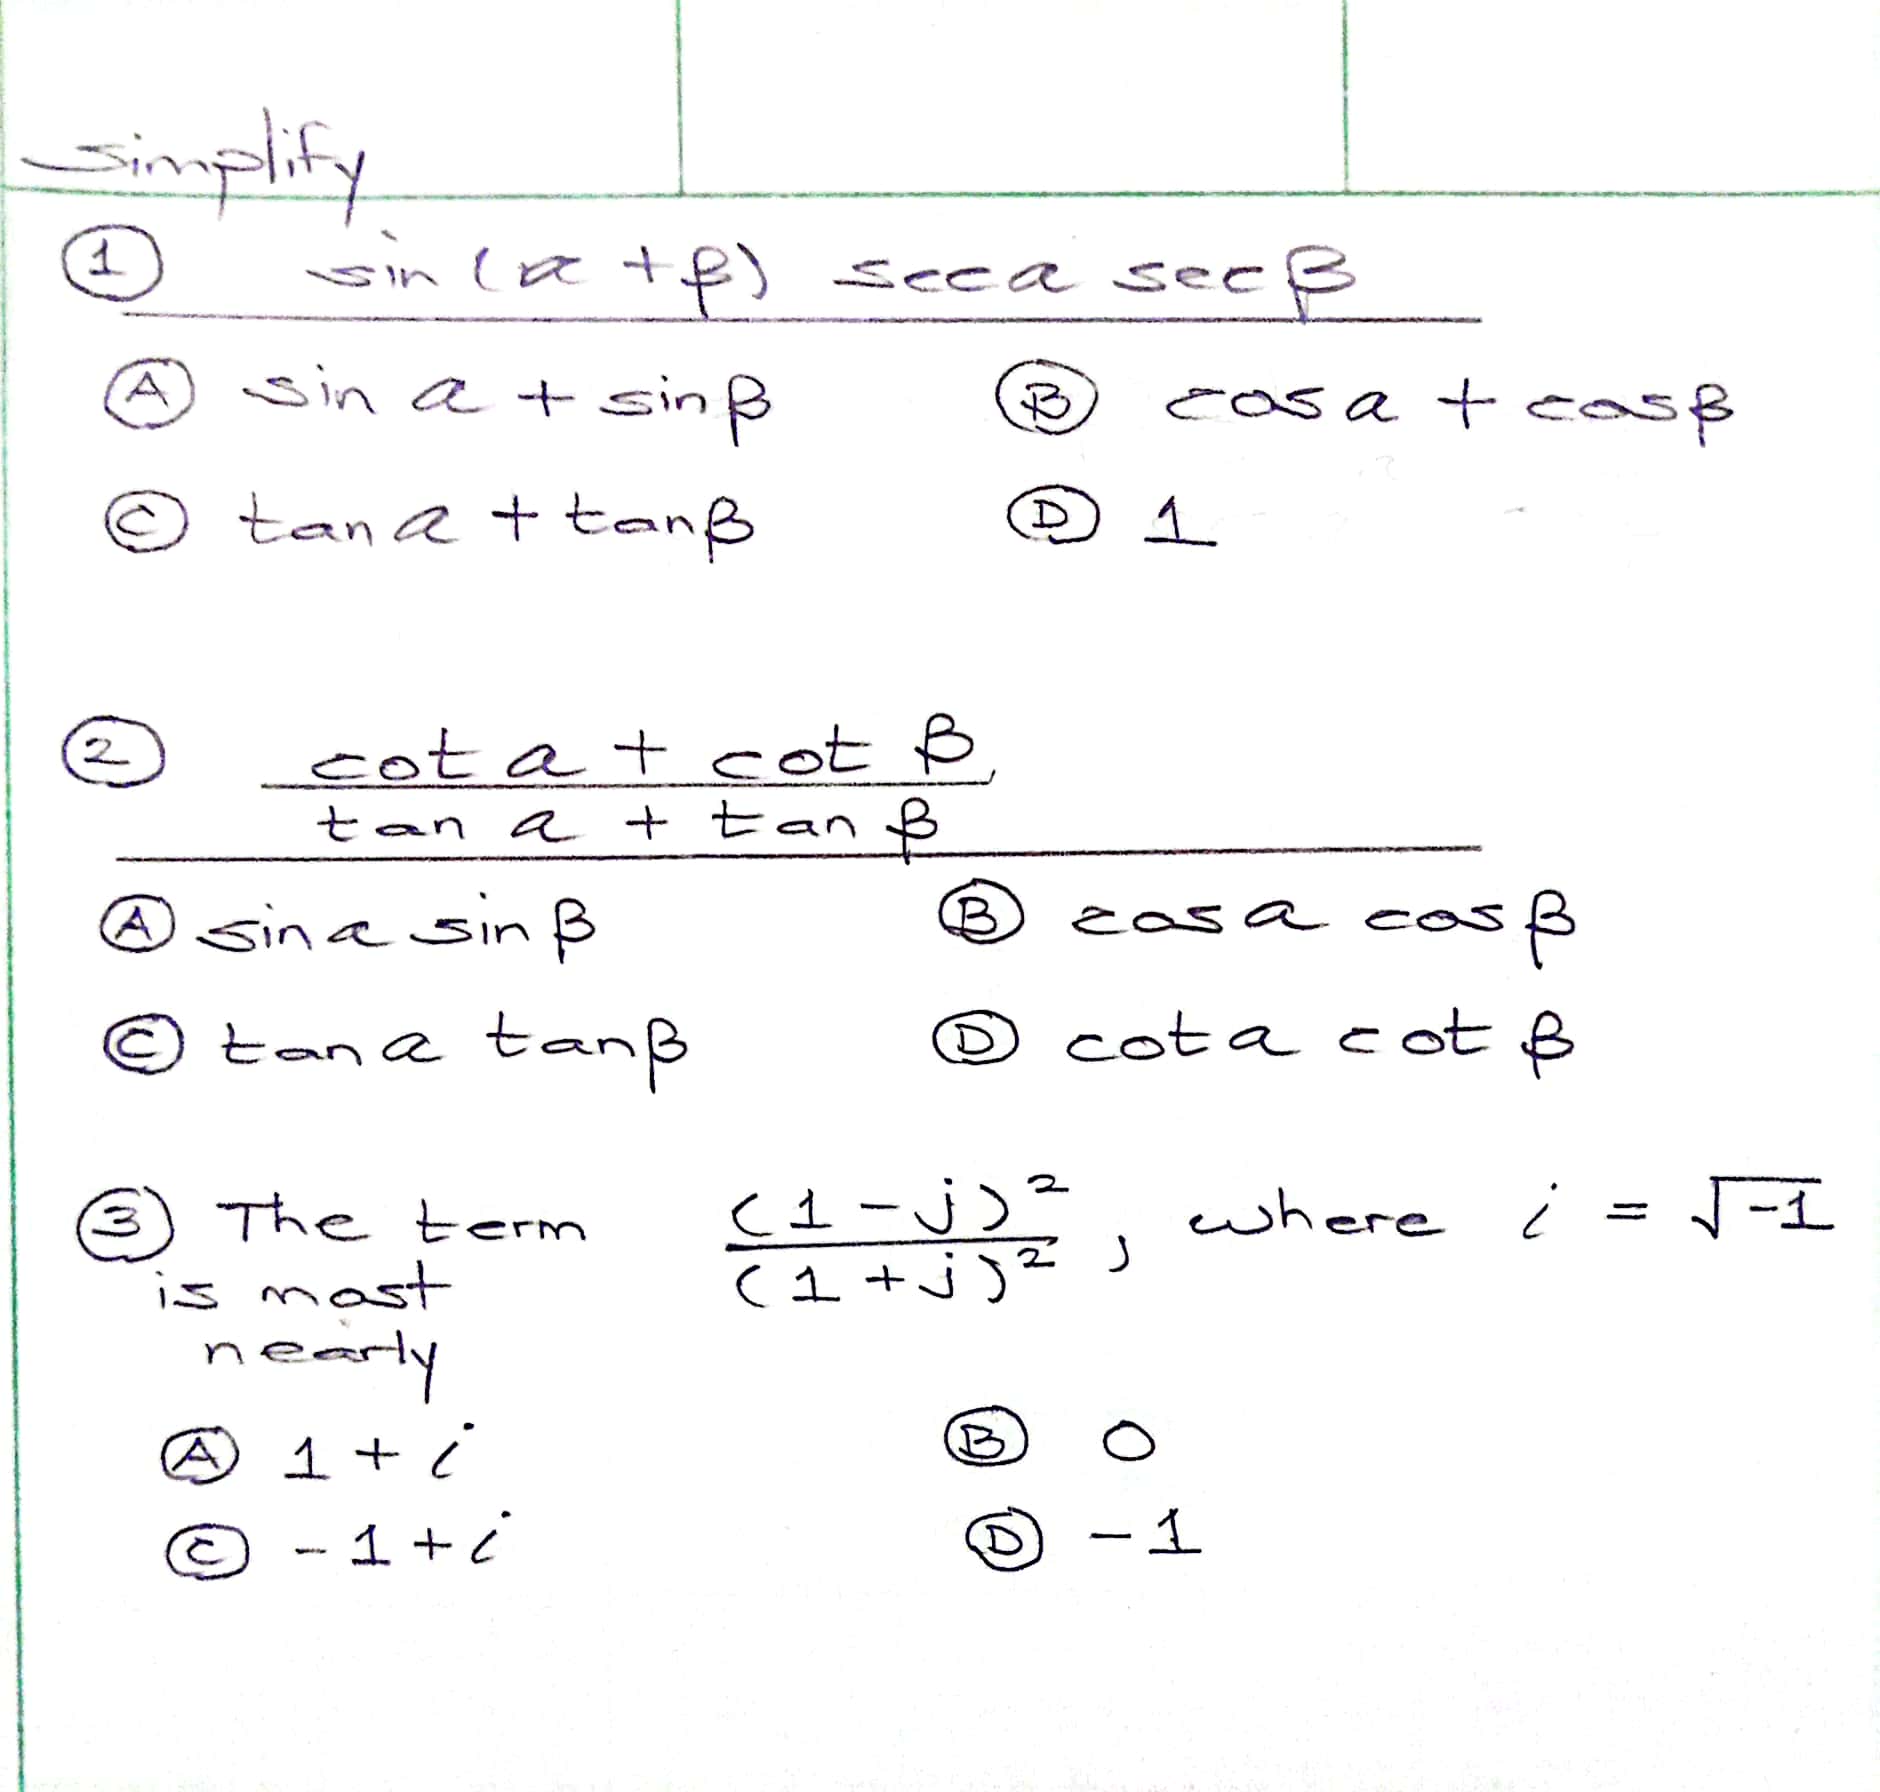 simplify
① sin (α + β) sec α sec β
Ⓐ sin α + sin β Ⓑ cos α + cos β
Ⓒ tan α + tan β Ⓓ 1
② cot α + cot β
tan α + tan β
Ⓐ sin α sin β Ⓑ cos α cos β
Ⓒ tan α tan β Ⓓ cot α cot β
③ The term (1 - j)² , where i = √-1
is most (1 + j)²
nearly
Ⓐ 1 + i Ⓑ 0
Ⓒ -1 + i Ⓓ -1